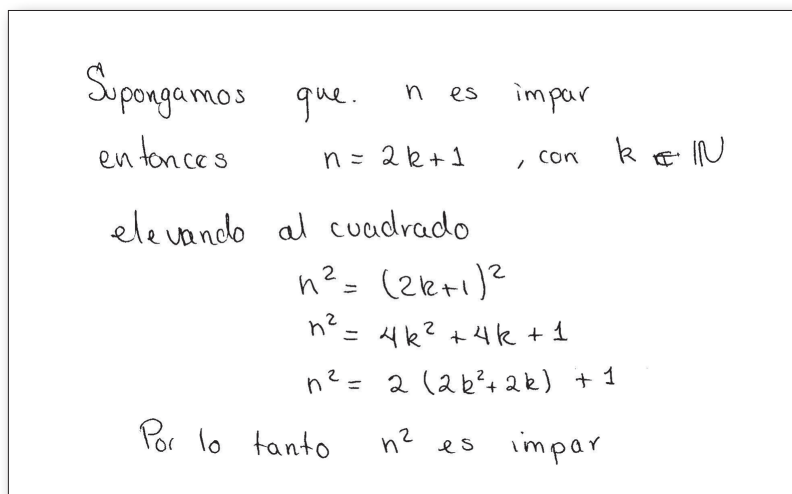 Supongamos que. n es impar
entonces n = 2k+1 , con k ∈ ℕ
elevando al cuadrado
n² = (2k+1)²
n² = 4k² + 4k + 1
n² = 2 (2k²+2k) + 1
Por lo tanto n² es impar